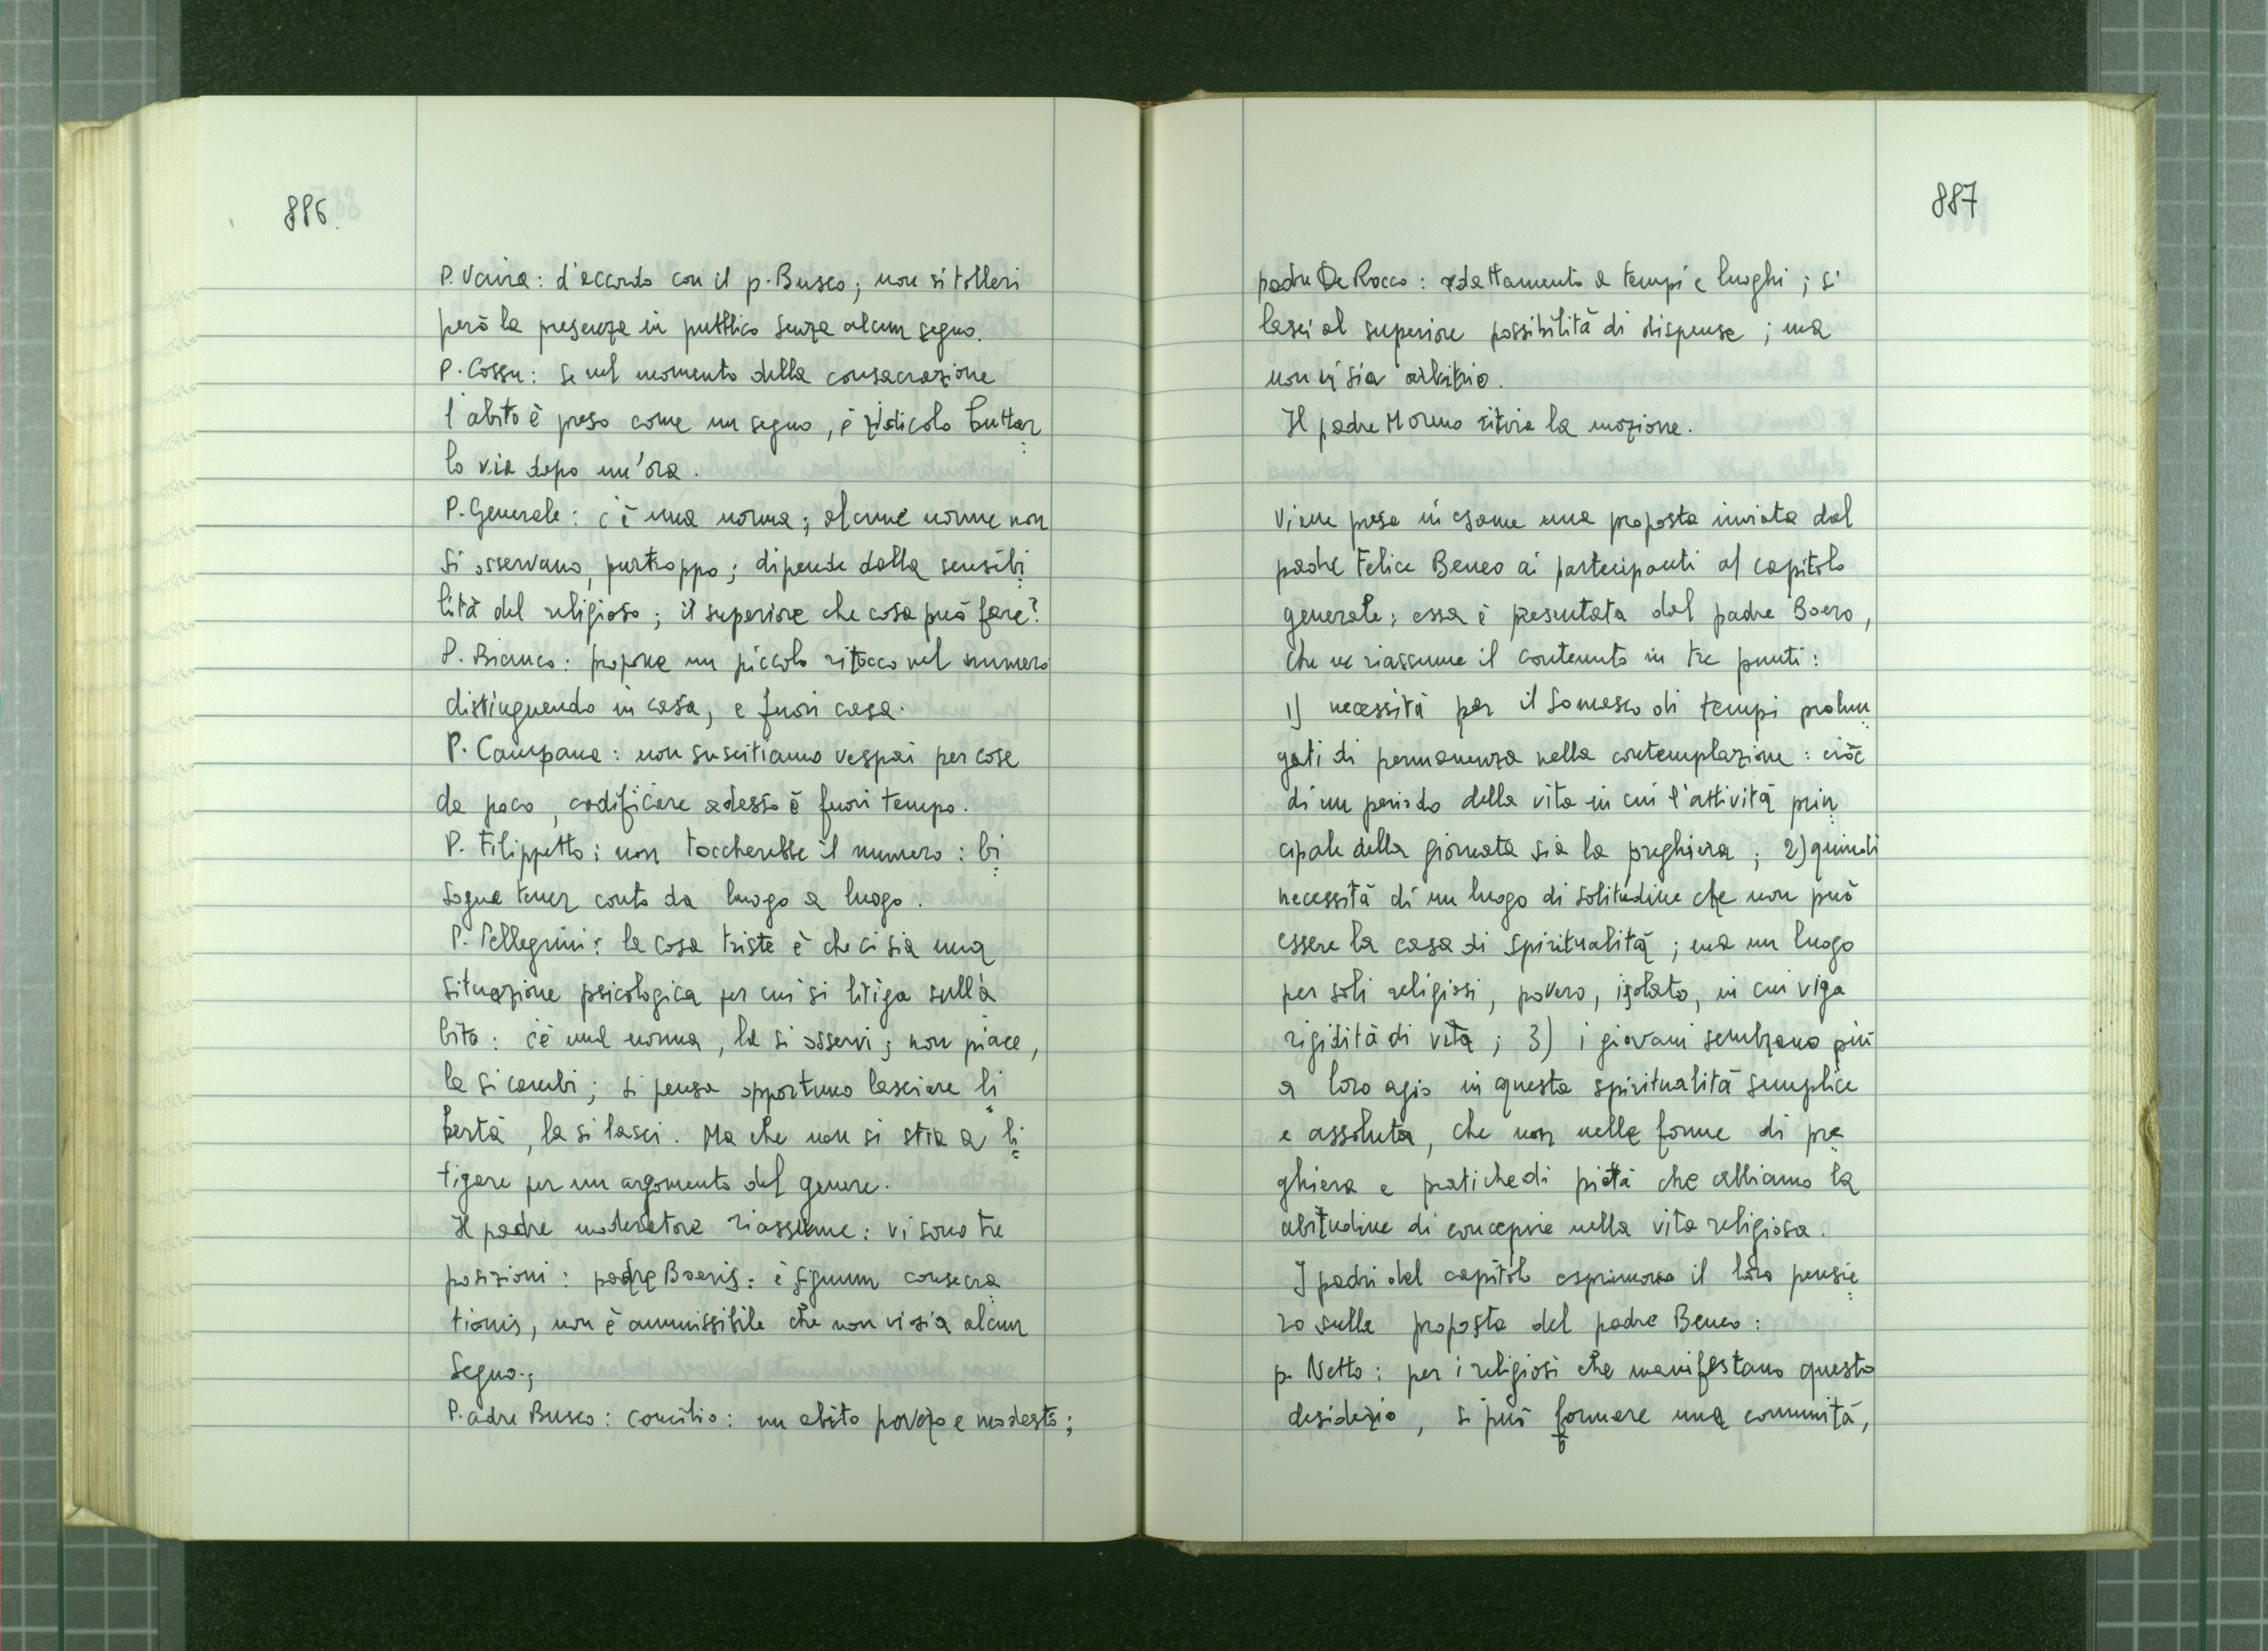 886.
P. Vaira: d'accordo con il p. Busco; non si tolleri
però la presenza in pubblico senza alcun segno.
P. Cossu: se nel momento della consacrazione
l'abito è preso come un segno, è ridicolo buttar
lo via dopo un'ora.
P. Generale: c'è una norma; alcune norme non
si osservano, purtroppo; dipende dalla sensibi
lità del religioso; il superiore che cosa può fare?
P. Bianco: propone un piccolo ritocco nel numero
distinguendo in casa, e fuori casa.
P. Campana: non suscitiamo vespai per cose
da poco, codificare adesso è fuori tempo.
P. Filippetto: non toccherebbe il numero: bi
sogna tener conto da luogo a luogo.
P. Pellegrini: la cosa triste è che ci sia una
situazione psicologica per cui si litiga sull'a
bito: c'è una norma, la si osservi; non piace,
la si cambi; si pensa opportuno lasciare li
bertà, la si lasci. Ma che non si stia a li
tigare per un argomento del genere.
Il padre moderatore riassume: vi sono tre
posizioni: padre Boeris: è signum consecra
tionis, non è ammissibile che non vi sia alcun
segno.;
P.adre Busco: concilio: un abito povero e modesto;
887
padre De Rocco: adattamento a tempi e luoghi; si
lasci al superiore possibilità di dispense; ma
non vi sia arbitrio.
Il padre Moreno ritira la mozione.
Viene presa in esame una proposta inviata dal
padre Felice Beneo ai partecipanti al capitolo
generale; essa è presentata dal padre Boero,
che ne riassume il contenuto in tre punti:
1) necessità per il Somasco di tempi prolun
gati di permanenza nella contemplazione: cioè
di un periodo della vita in cui l'attività prin
cipale della giornata sia la preghiera; 2) quindi
necessità di un luogo di solitudine che non può
essere la casa di spiritualità; ma un luogo
per soli religiosi, povero, isolato, in cui viga
rigidità di vita; 3) i giovani sembrano più
a loro agio in questa spiritualità semplice
e assoluta, che non nelle forme di pre
ghiera e pratiche di pietà che abbiamo la
abitudine di concepire nella vita religiosa.
I padri del capitolo esprimono il loro pensie
ro sulla proposta del padre Beneo:
p. Netto: per i religiosi che manifestano questo
desiderio, si può formare una comunità,